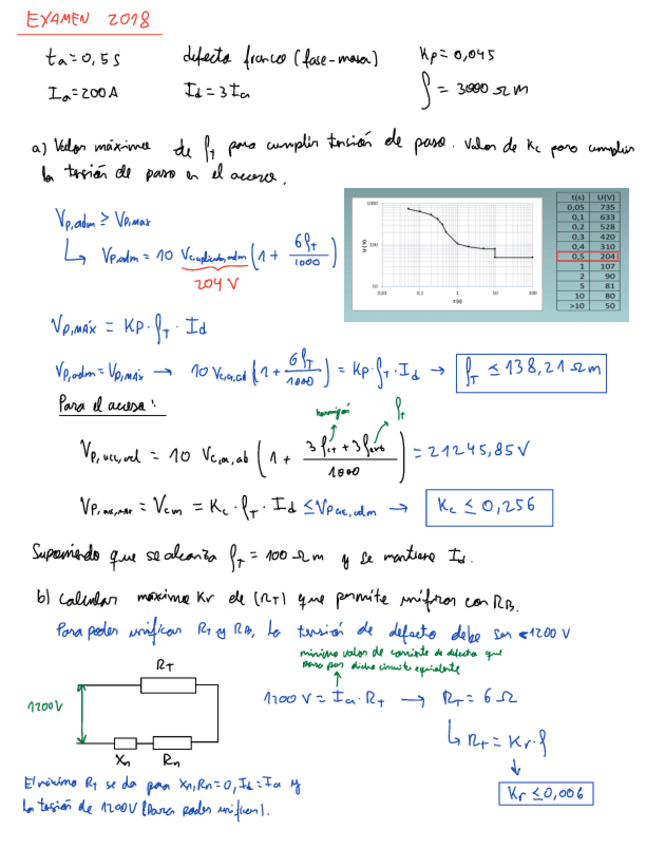 EXAMEN 2018
ta = 0,5 s defecto franco (fase-masa) Kp = 0,045
Ia = 200 A Id = 3 Ia ρ = 3000 Ω m
a) Valor máximo de ρT para cumplir tensión de paso. Valor de Kc para cumplir
la tensión de paso en el acceso.
Vp,adm ≥ Vp,max
↳ Vp,adm = 10 Vc,aplicada,adm (1 + 6ρT/1000)
204 V
1000
100
10
U (V)
0,01 0,1 1 10 100
t (s)
t(s) U(V)
0,05 735
0,1 633
0,2 528
0,3 420
0,4 310
0,5 204
1 107
2 90
5 81
10 80
>10 50
Vp,máx = Kp · ρT · Id
Vp,adm = Vp,máx → 10 Vca,ad (1 + 6ρT/1000) = Kp · ρT · Id → ρT ≤ 138,21 Ω m
Para el acceso:
hormigón ρT
Vp,acc,ad = 10 Vc,a,ad (1 + (3ρ + 3ρ)/1000) = 21245,85 V
Vp,acc,max = Vcm = Kc · ρT · Id ≤ Vp acc,adm → Kc ≤ 0,256
Suponiendo que se alcanza ρT = 100 Ω m y se mantiene Id.
b) Calcular máximo Kr de (RT) que permite unificar con RB.
Para poder unificar RT y RB, la tensión de defecto debe ser < 1200 V
mínimo valor de corriente de defecto que
pasa por dicho circuito equivalente
RT
1200 V
Xn Rn
1200 V = Ia · RT → RT = 6 Ω
↳ RT = Kr · ρ
↓
Kr ≤ 0,006
El máximo RT se da para Xn, Rn = 0, Id = Ia y
la tensión de 1200 V (para poder unificar).